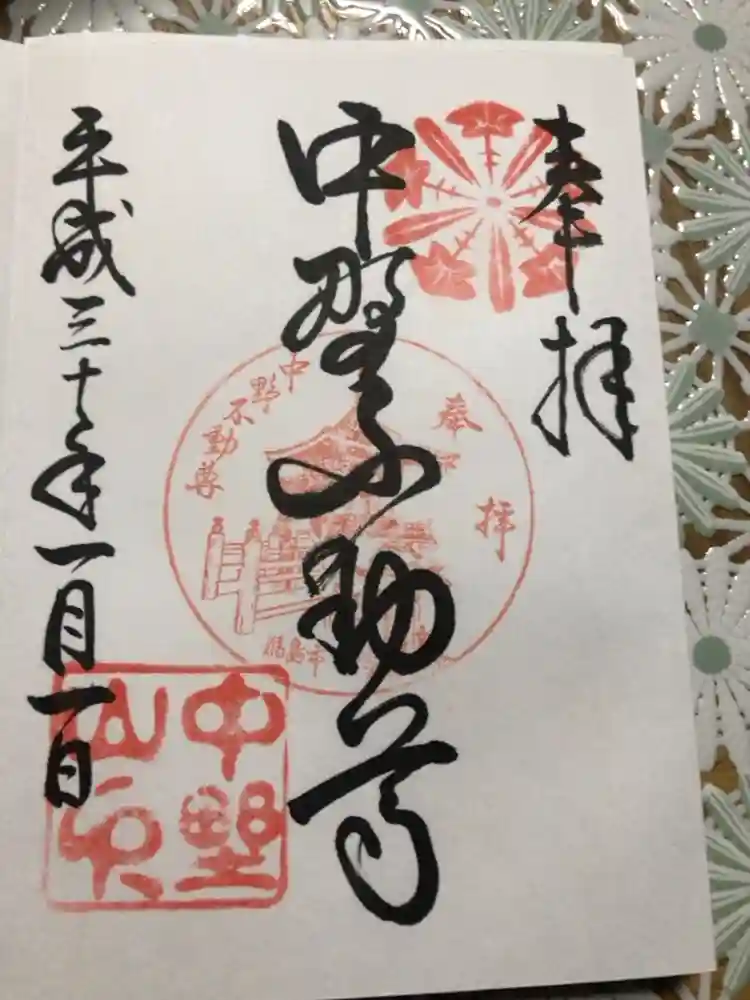 奉拝
中野不動尊
平成三十年一月一日
奉拝
中野不動尊
福島市
中野